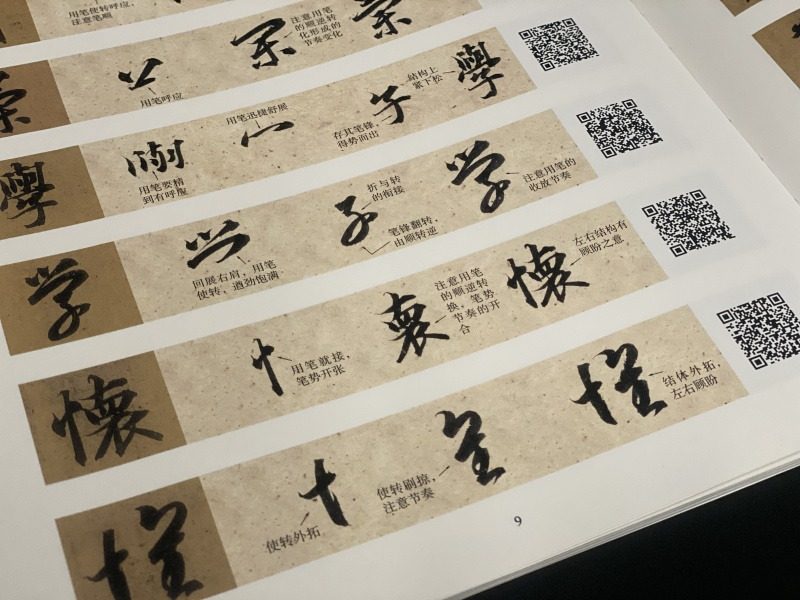 用笔使转呼应，
注意笔顺
用笔呼应
注意用笔
的顺逆转
化形成的
节奏变化
學
用笔要精
到有呼
用笔迅捷舒展
存其笔锋，
得势而出
子
结构上
紧下松
學
学
回展右肩，用笔
使转，遒劲饱满
折与转
的衔接
子
笔锋翻转，
由顺转逆
学
注意用笔的
收放节奏
懷
忄
用笔就接，
笔势开张
注意用笔
的顺逆转
换，笔势
节奏的开
合
懷
左右结构有
顾盼之意
使转外拓
使转刷掠，
注意节奏
结体外拓，
左右顾盼
9